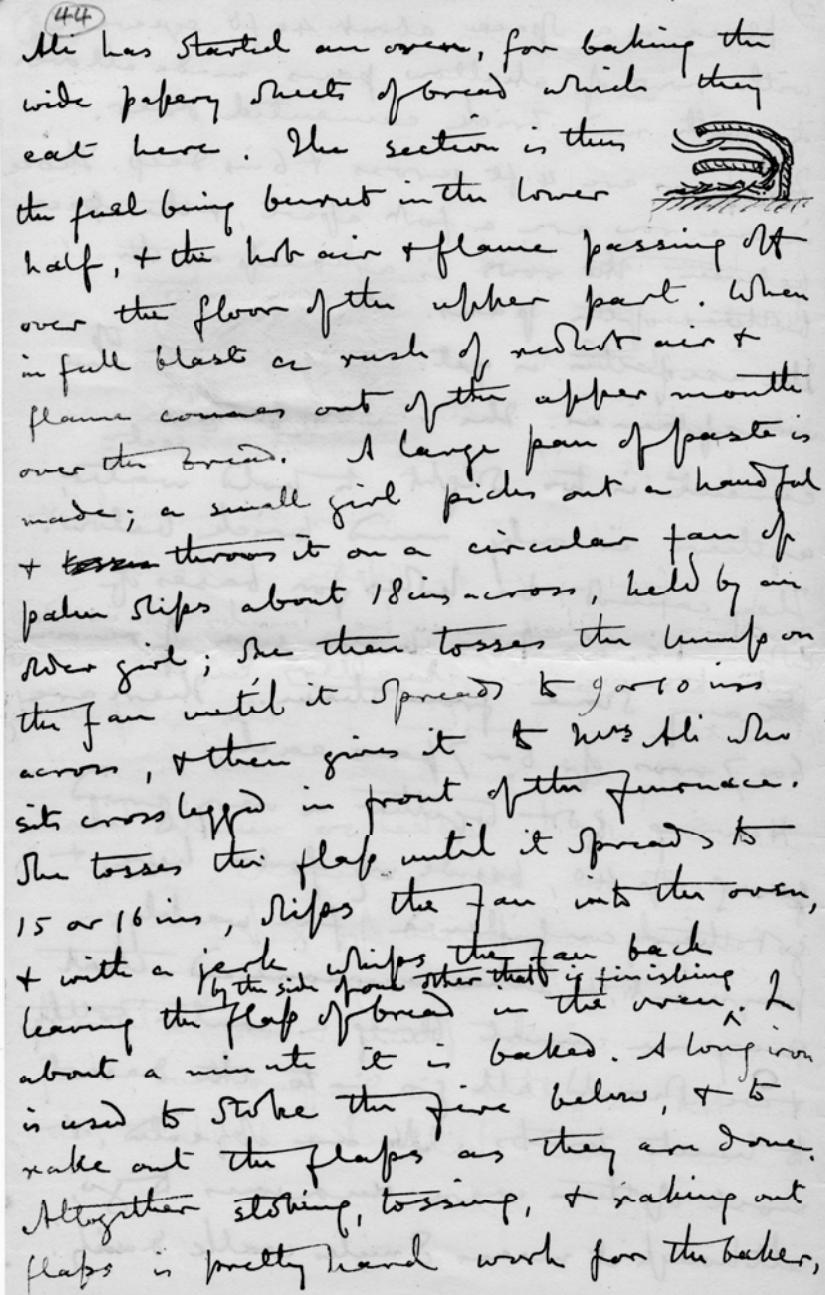 44
Ali has started an oven, for baking the
wide papery sheets of bread which they
eat here. The section is thus
the fuel being burnt in the lower
half, & the hot air & flame passing off
over the floor of the upper part. When
in full blast a rush of redhot air &
flame comes out of the upper mouth
over the bread. A large pan of paste is
made; a small girl picks out a handful
& throws it on a circular fan of
palm slips about 18 ins across, held by an
older girl; she then tosses the lump on
the fan until it spreads to 9 or 10 ins
across, & then gives it to Mrs Ali who
sits cross legged in front of the furnace.
She tosses the flap until it spreads to
15 or 16 ins, slips the fan into the oven,
& with a jerk whips the fan back
by the side of one other that is finishing
leaving the flap of bread in the oven. In
about a minute it is baked. A long iron
is used to stoke the fire below, & to
rake out the flaps as they are done.
Altogether stoking, tossing, & raking out
flaps is pretty hard work for the baker,